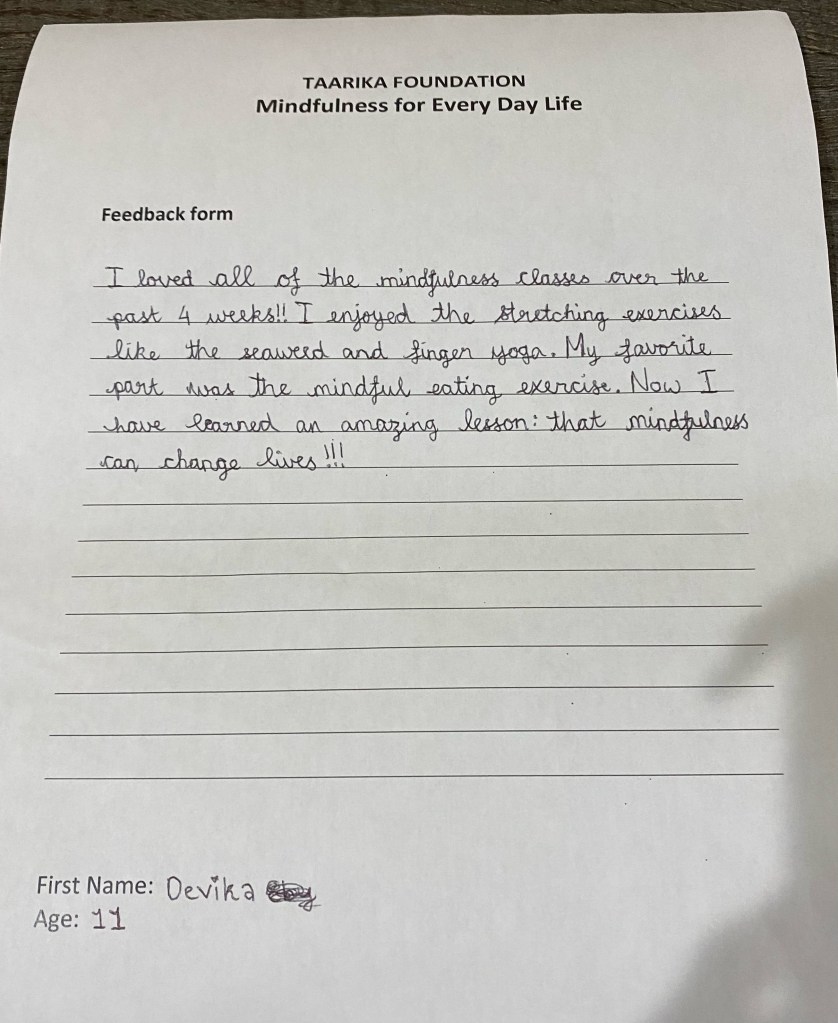 TAARIKA FOUNDATION
Mindfulness for Every Day Life
Feedback form
I loved all of the mindfulness classes over the
past 4 weeks!! I enjoyed the stretching exercises
like the seaweed and finger yoga. My favorite
part was the mindful eating exercise. Now I
have learned an amazing lesson: that mindfulness
can change lives!!!
First Name: Devika
Age: 11